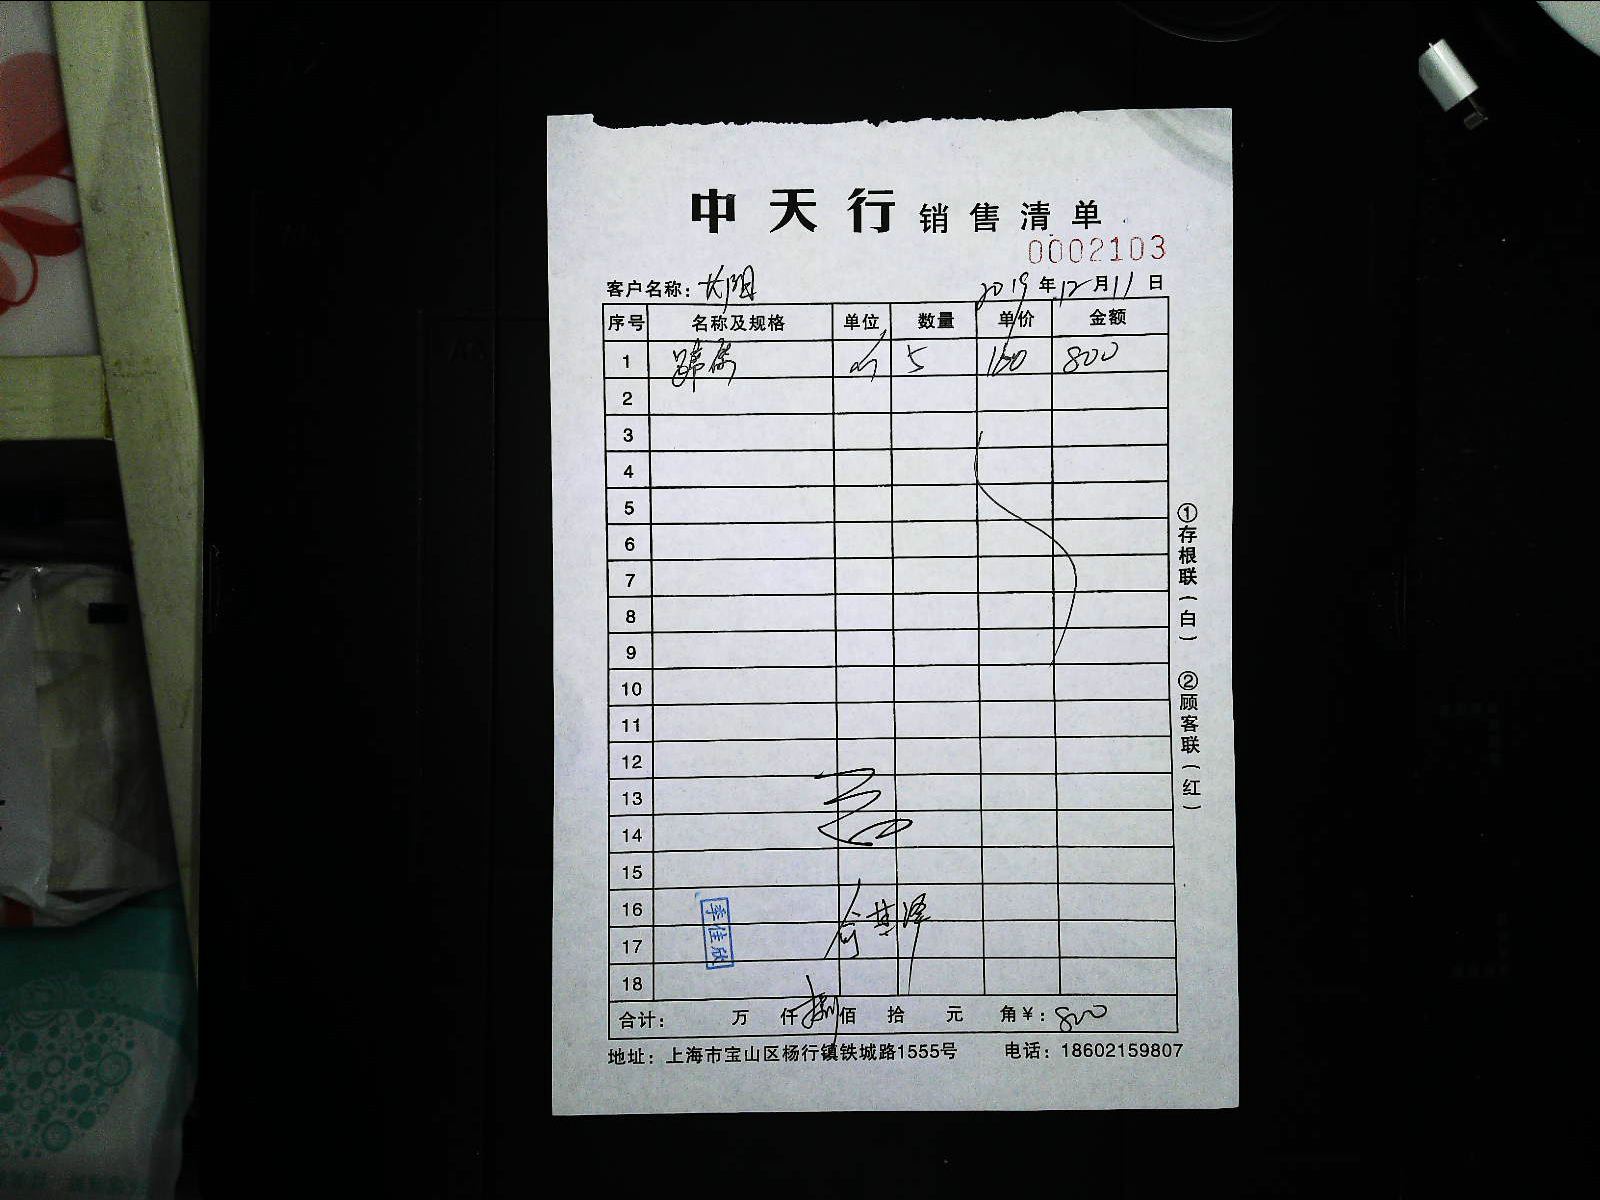 中天行销售清单
0002103
客户名称：长阳 2019年12月11日
序号 名称及规格 单位 数量 单价 金额
1 5 160 800
2
3
4
5
6
7
8
9
10
11
12
13
14
15
16
17
18
季佳欣
合计： 万 仟 捌佰 拾 元 角￥：800
地址：上海市宝山区杨行镇铁城路1555号 电话：18602159807
①存根联（白） ②顾客联（红）